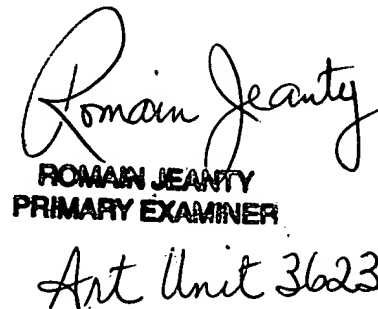 Romain Jeanty
ROMAIN JEANTY
PRIMARY EXAMINER
Art Unit 3623